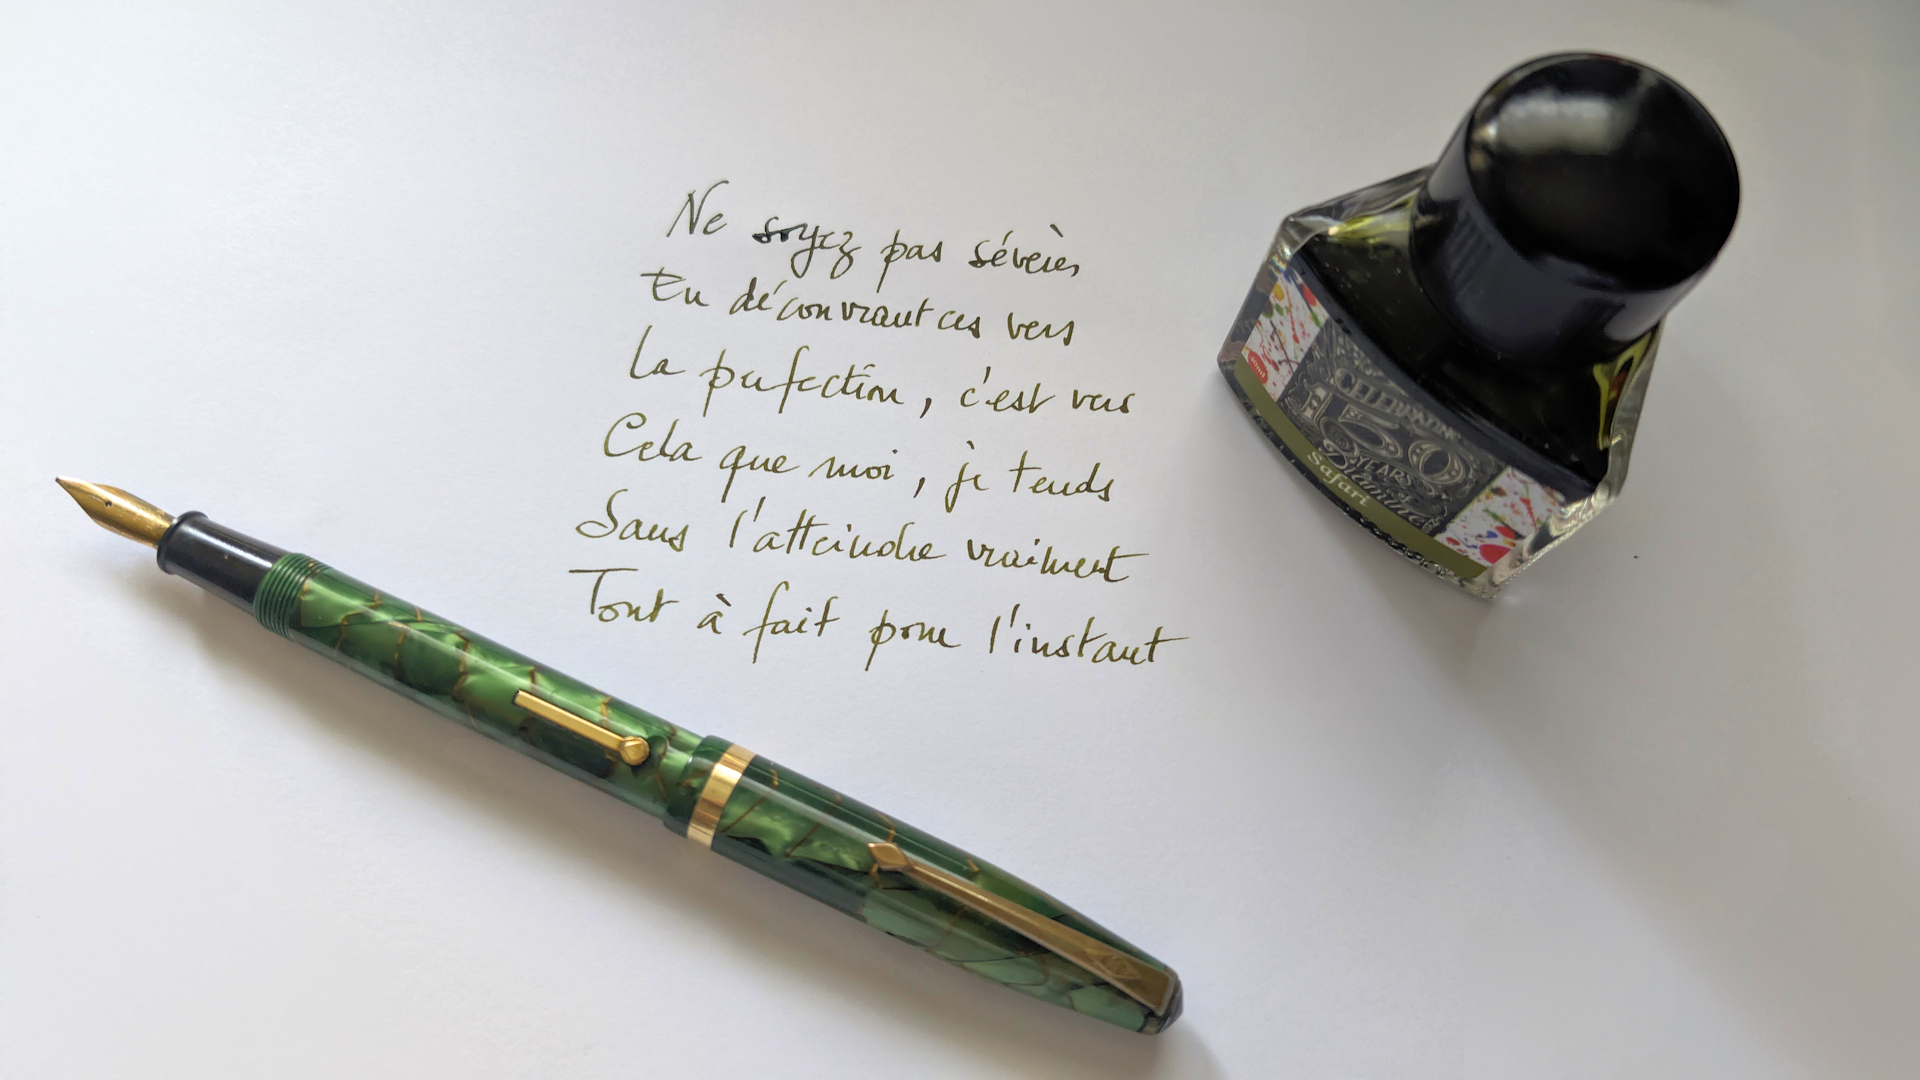 Ne soyez pas sévères
En découvrant ces vers
La perfection, c'est vers
Cela que moi, je tends
Sans l'atteindre vraiment
Tout à fait pour l'instant
CELEBRATING
150
YEARS
of
Diamine
Safari